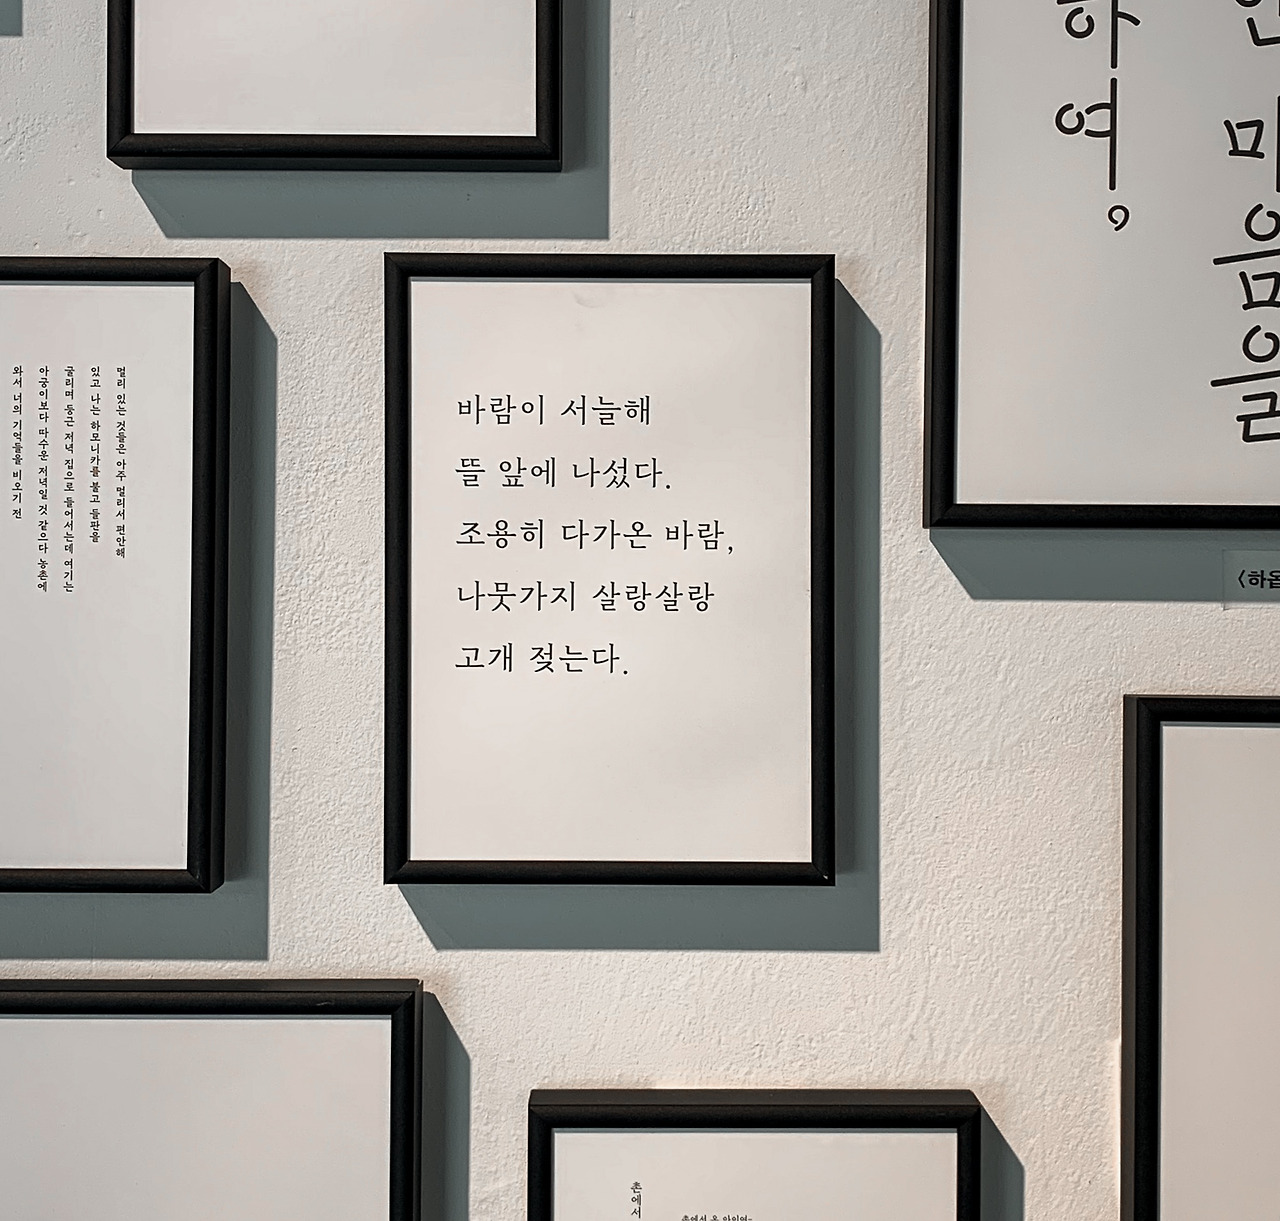 바람이 서늘해
뜰 앞에 나섰다.
조용히 다가온 바람,
나뭇가지 살랑살랑
고개 젖는다.
멀리 있는 것들은 아주 멀리서 편안해
있고 나는 하모니카를 불고 들판을
굴리며 둥근 저녁 집으로 들어서는데 여기는
아궁이보다 따수운 저녁일 것 같으다 농촌에
와서 너의 기억들을 비오기 전
마음을
하여,
〈하옵
촌에서
촌에서 온 아이여~